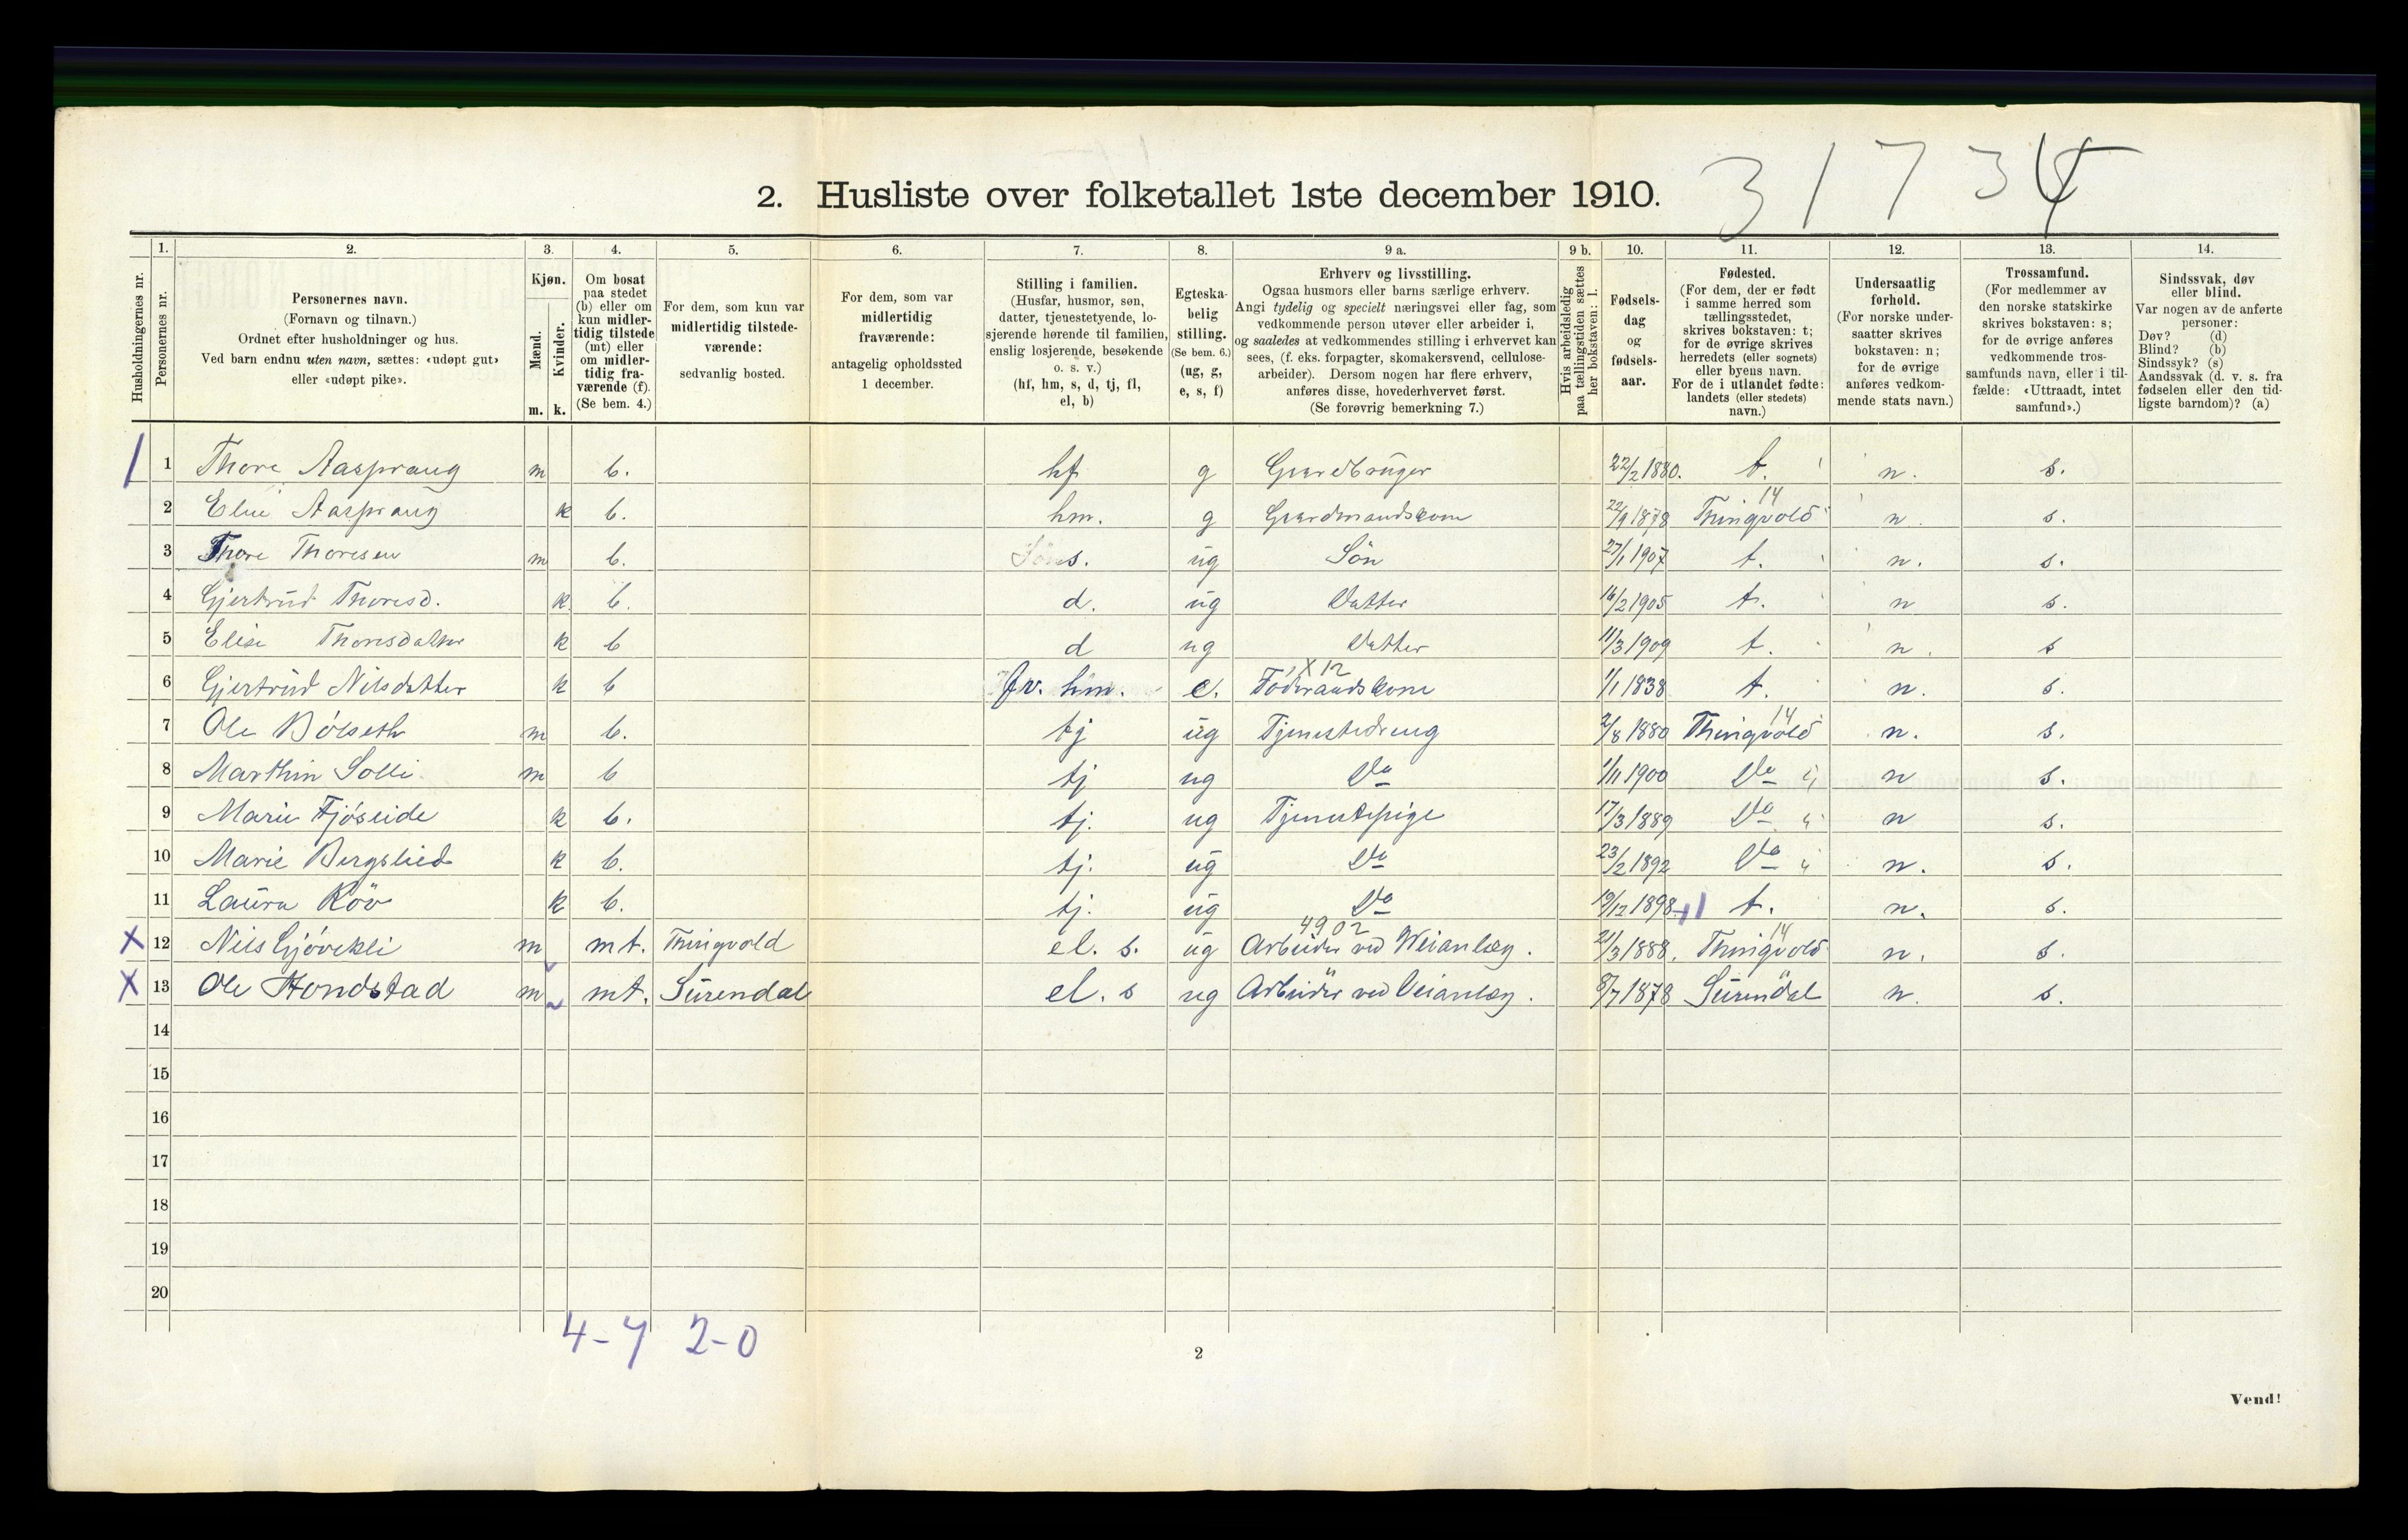 2. Husliste over folketallet 1ste december 1910.
3 1 7 3 4
Husholdningernes nr.
1. Personernes nr.
2. Personernes navn. (Fornavn og tilnavn.) Ordnet efter husholdninger og hus. Ved barn endnu uten navn, sættes: «udøpt gut» eller «udøpt pike».
3. Kjøn. Mænd. m. Kvinder. k.
4. Om bosat paa stedet (b) eller om kun midlertidig tilstede (mt) eller om midlertidig fraværende (f). (Se bem. 4.)
5. For dem, som kun var midlertidig tilstedeværende: sedvanlig bosted.
6. For dem, som var midlertidig fraværende: antagelig opholdssted 1 december.
7. Stilling i familien. (Husfar, husmor, søn, datter, tjenestetyende, losjerende hørende til familien, enslig losjerende, besøkende o. s. v.) (hf, hm, s, d, tj, fl, el, b)
8. Egteskabelig stilling. (Se bem. 6.) (ug, g, e, s, f)
9 a. Erhverv og livsstilling. Ogsaa husmors eller barns særlige erhverv. Angi tydelig og specielt næringsvei eller fag, som vedkommende person utøver eller arbeider i, og saaledes at vedkommendes stilling i erhvervet kan sees, (f. eks. forpagter, skomakersvend, cellulosearbeider). Dersom nogen har flere erhverv, anføres disse, hovederhvervet først. (Se forøvrig bemerkning 7.)
9 b. Hvis arbeidsledig paa tællingstiden sættes her bokstaven: l.
10. Fødselsdag og fødselsaar.
11. Fødested. (For dem, der er født i samme herred som tællingsstedet, skrives bokstaven: t; for de øvrige skrives herredets (eller sognets) eller byens navn. For de i utlandet fødte: landets (eller stedets) navn.)
12. Undersaatlig forhold. (For norske undersaatter skrives bokstaven: n; for de øvrige anføres vedkommende stats navn.)
13. Trossamfund. (For medlemmer av den norske statskirke skrives bokstaven: s; for de øvrige anføres vedkommende trossamfunds navn, eller i tilfælde: «Uttraadt, intet samfund».)
14. Sindssvak, døv eller blind. Var nogen av de anførte personer: Døv? (d) Blind? (b) Sindssyk? (s) Aandssvak (d. v. s. fra fødselen eller den tidligste barndom)? (a)
1 Thore Aasprang m b. hf g Gaardbruger 22/2 1880. t. n. s.
2 Eline Aasprang k b. hm. g Gaardmandskone 22/9 1878 Thingvold 14 n. s.
3 Thore Thoresen m b. s. ug Sön 27/1 1907 t. n. s.
4 Gjertrud Thoresd. k. b. d. ug Datter 16/2 1905 t. n s.
5 Elise Thoresdatter k b d ug Datter 11/3 1909 t. n. s
6 Gjertrud Nilsdatter k b fv. hm. e. Föderaadskone X 12 1/1 1838 t. n. s.
7 Ole Bölseth m b. tj ug Tjenestedreng 2/8 1880 Thingvold 14 n. s.
8 Marthin Solli m b tj ug Do 1/11 1900 Do n s.
9 Marie Fjöseide k b. tj. ug Tjenestepige 17/3 1889 Do n s.
10 Marie Bergslied k b. tj. ug Do 23/2 1892 Do n. s.
11 Laura Röv k b. tj. ug Do 19/12 1898 t. n. s.
X 12 Nils Gjövekli m mt. Thingvold el. s. ug Arbeider ved Weianlæg. 4902 21/3 1888. Thingvold 14 n. s.
X 13 Ole Hondstad m mt. Surendal el. s ug Arbeider ved Veianlæg. " 8/7 1878 Surendal n. s.
14
15
16
17
18
19
20
4-7 2-0
2
Vend!